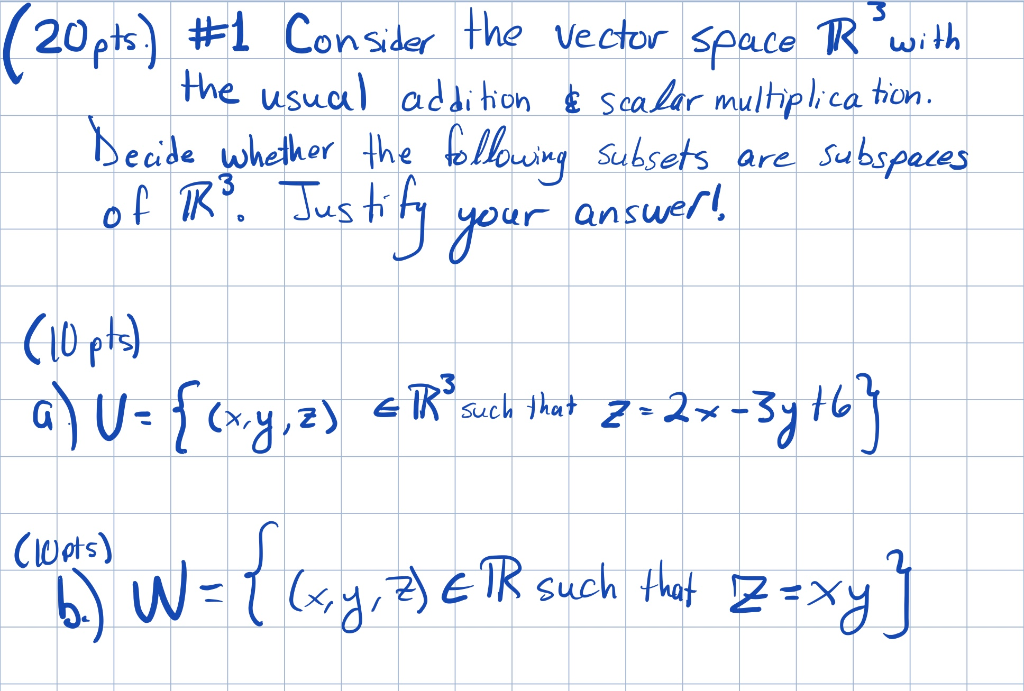 (20pts.) #1 Consider the vector space ℝ³ with
the usual addition & scalar multiplication.
Decide whether the following subsets are subspaces
of ℝ³. Justify your answer!
(10 pts)
a) U = {(x,y,z) ∈ ℝ³ such that z = 2x - 3y + 6}
(10pts)
b.) W = {(x,y,z) ∈ ℝ such that z = xy}